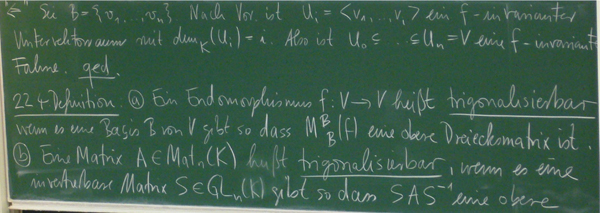 "⇐" Sei B = {v₁, ..., vₙ}. Nach Vor. ist Uᵢ = <v₁, .., vᵢ> ein f-invarianter
Untervektorraum mit dim_K(Uᵢ) = i. Also ist U₀ ⊆ .. ⊆ Uₙ = V eine f-invariante
Fahne. qed.
22.4 Definition: (a) Ein Endomorphismus f: V → V heißt trigonalisierbar
wenn es eine Basis B von V gibt so dass M_B^B(f) eine obere Dreiecksmatrix ist.
(b) Eine Matrix A ∈ Matₙ(K) heißt trigonalisierbar, wenn es eine
invertierbare Matrix S ∈ GLₙ(K) gibt so dass SAS⁻¹ eine obere